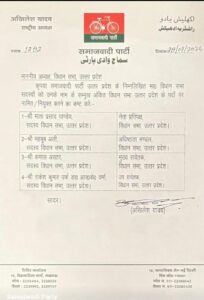 अखिलेश यादव
राष्ट्रीय अध्यक्ष
اکھلیش یادو
समाजवादी पार्टी
समाजवादी पार्टी
سماج وادی پارٹی
माननीय अध्यक्ष, विधान सभा, उत्तर प्रदेश
कृपया समाजवादी पार्टी उत्तर प्रदेश के निम्नलिखित मा0 विधान सभा
सदस्यों को उनके नाम के सम्मुख अंकित विधान सभा उत्तर प्रदेश के पदों पर
नामित/नियुक्त करने का कष्ट करें-
1-श्री माता प्रसाद पाण्डेय, नेता प्रतिपक्ष
सदस्य विधान सभा, उत्तर प्रदेश
2-श्री महबूब अली, अधिष्ठाता मण्डल,
सदस्य विधान सभा, उत्तर प्रदेश विधान सभा, उत्तर प्रदेश
3-श्री कमाल अख्तर, मुख्य सचेतक,
सदस्य विधान सभा, उत्तर प्रदेश विधान सभा, उत्तर प्रदेश
4-श्री राकेश कुमार उर्फ डा0 आर0के0 वर्मा, उप सचेतक,
सदस्य विधान सभा, उत्तर प्रदेश विधान सभा, उत्तर प्रदेश
सादर!
(अखिलेश यादव)